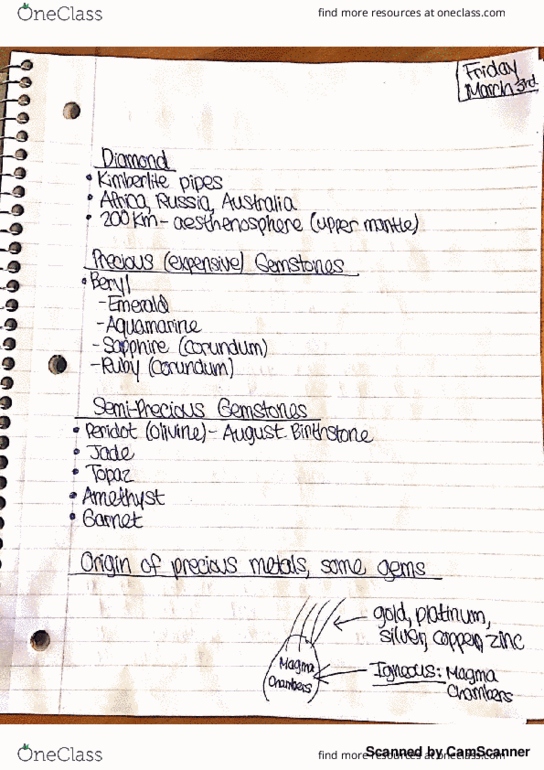 OneClass
find more resources at oneclass.com
Friday
March 3rd
Diamond
• Kimberlite pipes
• Africa, Russia, Australia
• 200 Km - aesthenosphere (upper mantle)
Precious (expensive) Gemstones
• Beryl
- Emerald
- Aquamarine
- Sapphire (corundum)
- Ruby (corundum)
Semi-Precious Gemstones
• Peridot (olivine) - August Birthstone
• Jade
• Topaz
• Amethyst
• Garnet
Origin of precious metals, some gems
gold, platinum,
silver, copper, zinc
Magma
Chambers
Igneous: Magma
Chambers
OneClass
find more resources at oneclass.com
Scanned by CamScanner